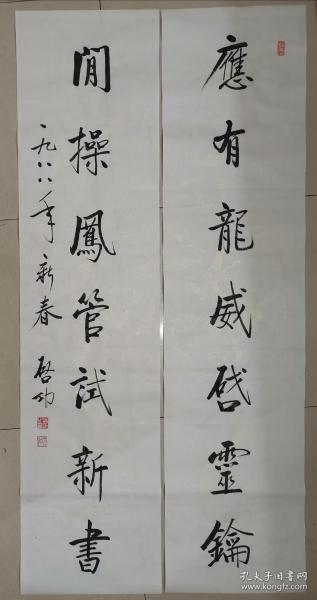 應有龍威啓靈鑰
閒操鳳管試新書
一九八八年新春 啓功
孔夫子旧书网